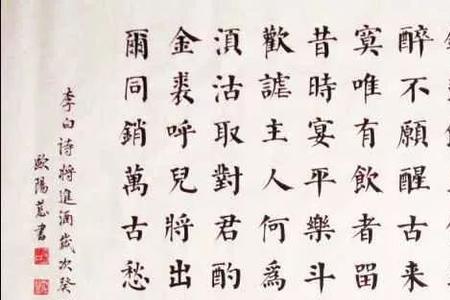 醉不願醒古来
寞唯有飲者留
昔時宴平樂斗
歡謔主人何爲
湏沽取對君酌
金裘呼兒將出
爾同銷萬古愁
李白詩將進酒歲次癸
歐陽書